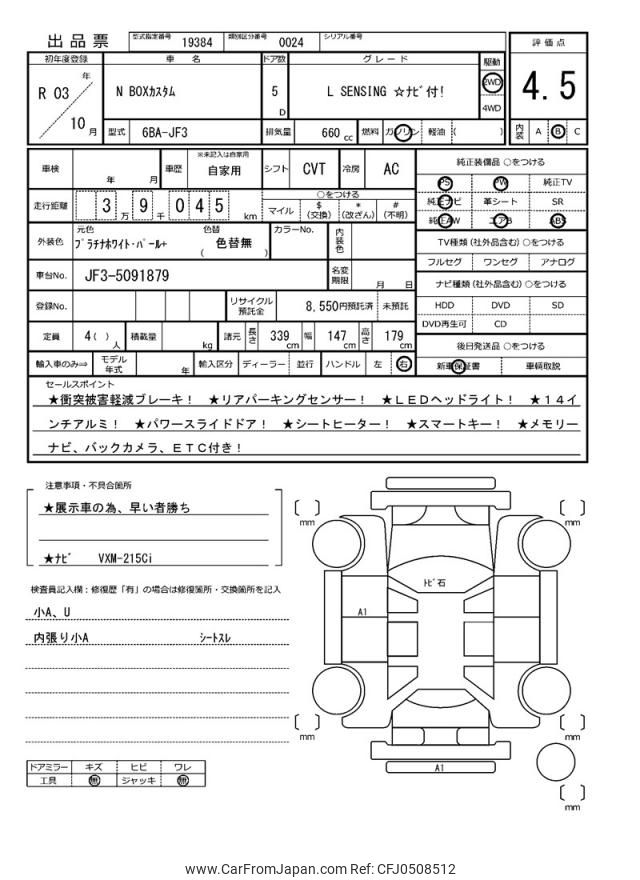 出品票 型式指定番号 19384 類別区分番号 0024 シリアル番号
初年度登録 車名 ドア数 グレード 駆動 評価点
R 03 年 10 月
N BOXカスタム 5 D L SENSING ☆ナビ付! 2WD 4WD 4.5
型式 6BA-JF3 排気量 660 cc 燃料 ガソリン 軽油 ( ) 内装 A B C
車検 年 月 車歴 ※未記入は自家用 自家用 シフト CVT 冷房 AC
純正装備品 ○をつける
PS PW 純正TV
純正ナビ 革シート SR
純正AW エアB ABS
走行距離 3 万 9 千 0 4 5 km
○をつける
マイル $ (交換) * (改ざん) # (不明)
外装色 元色 プラチナホワイト・パール+ 色替 ( 色替無 ) カラーNo. 内装色
TV種類 (社外品含む) ○をつける
フルセグ ワンセグ アナログ
車台No. JF3-5091879 名変期限 月 日
ナビ種類 (社外品含む) ○をつける
HDD DVD SD
DVD再生可 CD
登録No. リサイクル預託金 8,550円預託済 未預託
定員 4( ) 人 積載量 kg 諸元 長さ 339 cm 幅 147 cm 高さ 179 cm
後日発送品 ○をつける
新車保証書 車輌取説
輸入車のみ⇒ モデル年式 年 輸入区分 ディーラー 並行 ハンドル 左 右
セールスポイント
★衝突被害軽減ブレーキ! ★リアパーキングセンサー! ★LEDヘッドライト! ★14イ
ンチアルミ! ★パワースライドドア! ★シートヒーター! ★スマートキー! ★メモリー
ナビ、バックカメラ、ETC付き!
注意事項・不具合箇所
★展示車の為、早い者勝ち
★ナビ VXM-215Ci
検査員記入欄:修復歴「有」の場合は修復箇所・交換箇所を記入
小A、U
内張り小A シートスレ
ドアミラー キズ ヒビ ワレ
工具 無 ジャッキ 無
mm
mm
トビ石
A1
mm
mm
A1
mm
www.CarFromJapan.com Ref: CFJ0508512